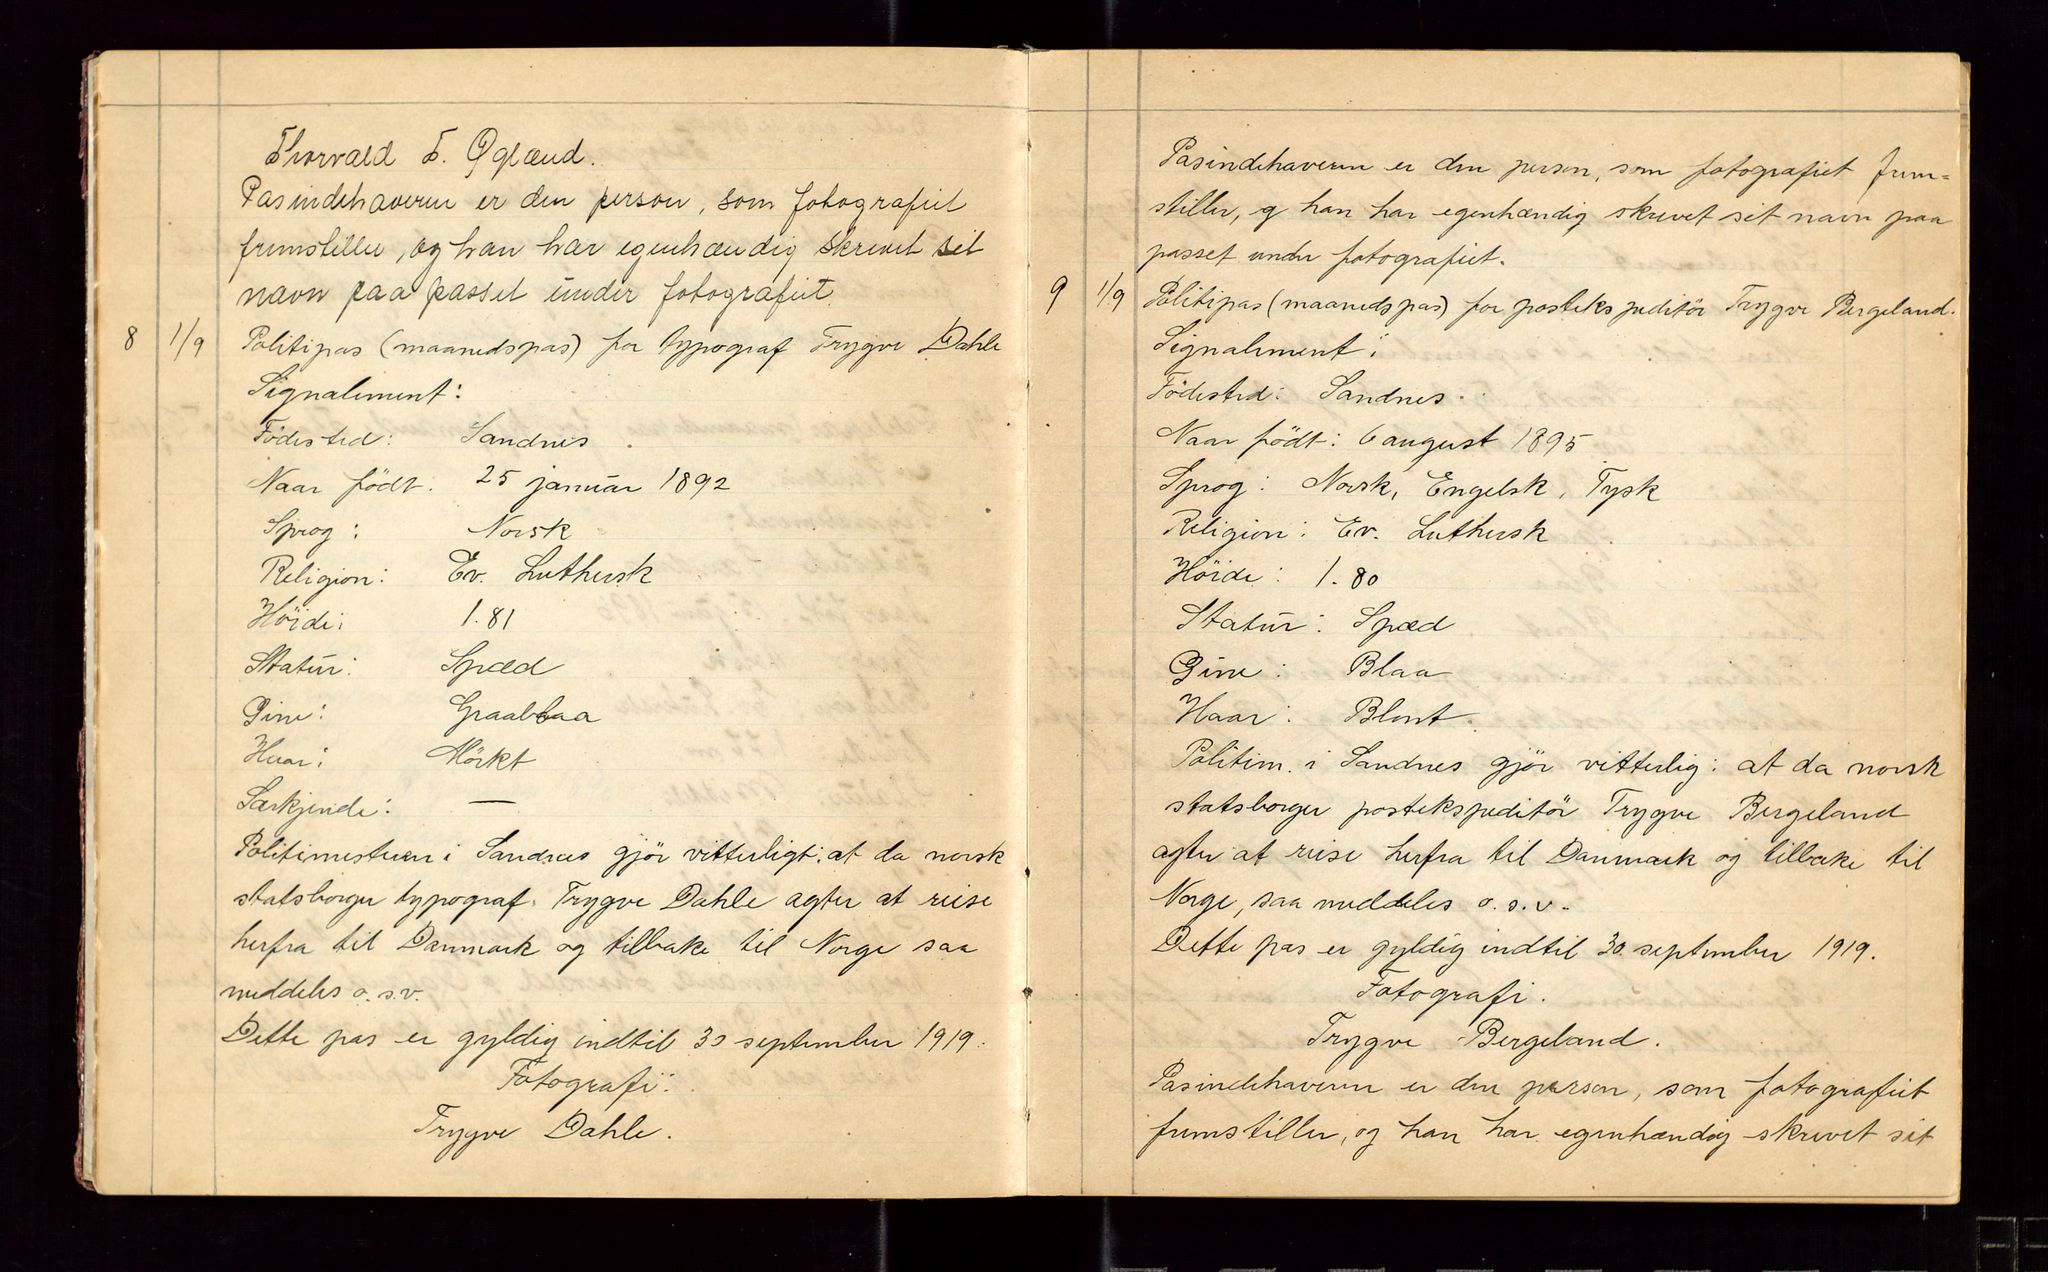 Thorvald T. Øglænd.
Pasindehaveren er den person, som fotografiet
fremstiller, og han har egenhændig skrevet sit
navn paa passet under fotografiet.
8 1/9 Politipas (maanedspas) for typograf Trygve Dahle
Signalement:
Födested: Sandnes
Naar født. 25 januar 1892
Sprog: Norsk
Religion: Ev. Luthersk
Höide: 1.81
Statur: Spæd
Øine: Graablaa
Haar: Mörkt
Særkjende: —
Politimesteren i Sandnes gjör vitterligt: at da norsk
statsborger typograf Trygve Dahle agter at reise
herfra til Danmark og tilbake til Norge saa
meddeles o.s.v.
Dette pas er gyldig indtil 30 september 1919.
Fotografi.
Trygve Dahle.
Pasindehaveren er den person, som fotografiet frem=
stiller, og han har egenhændig skrevet sit navn paa
passet under fotografiet.
9 1/9 Politipas (maanedspas) for postekspeditör Trygve Bergeland.
Signalement:
Födested: Sandnes.
Naar födt: 6 august 1895
Sprog: Norsk, Engelsk, Tysk
Religion: Ev. Luthersk
Höide: 1.80
Statur: Spæd
Øine: Blaa
Haar: Blont.
Politim. i Sandnes gjör vitterlig: at da norsk
statsborger postekspeditör Trygve Bergeland
agter at reise herfra til Danmark og tilbake til
Norge, saa meddeles o.s.v.
Dette pas er gyldig indtil 30. september 1919.
Fotografi.
Trygve Bergeland.
Pasindehaveren er den person, som fotografiet
fremstiller, og han har egenhændig skrevet sit